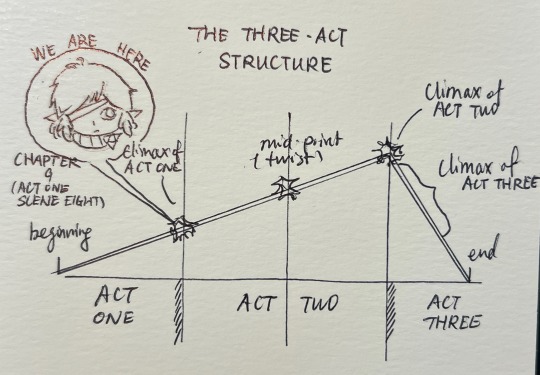 THE THREE-ACT
STRUCTURE
WE ARE HERE
CHAPTER
9
(ACT ONE
SCENE EIGHT)
climax of
ACT ONE
mid-point
(twist)
climax of
ACT TWO
climax of
ACT THREE
beginning
end
ACT
ONE
ACT TWO
ACT
THREE